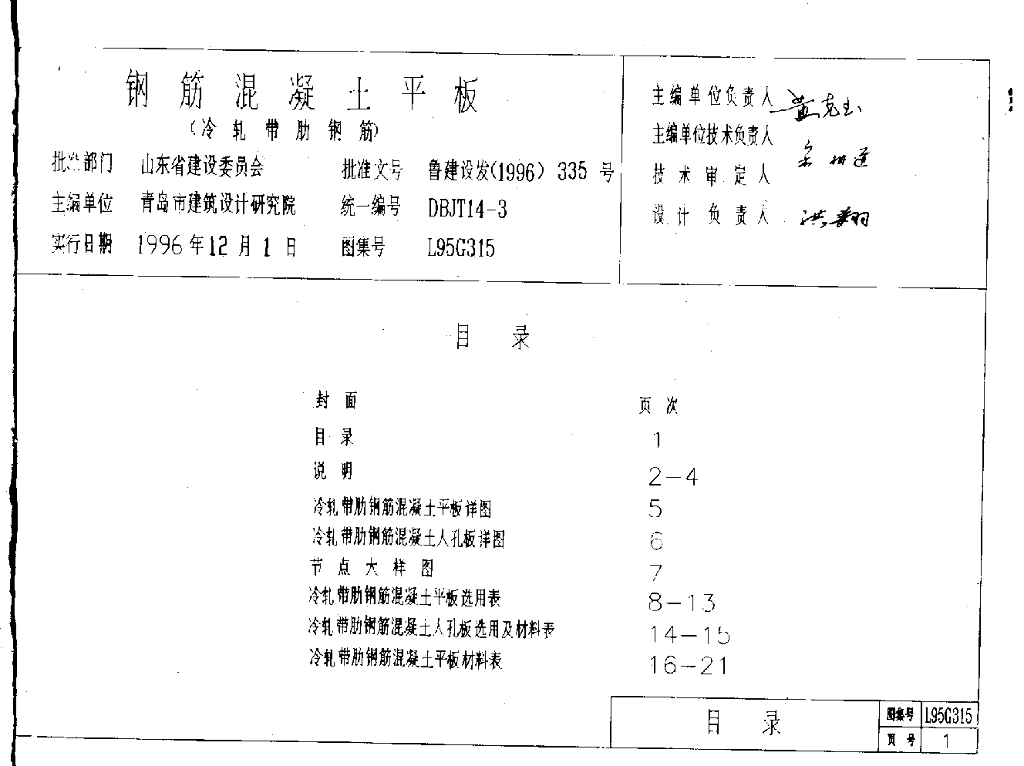 钢筋混凝土平板
(冷轧带肋钢筋)
批准部门 山东省建设委员会 批准文号 鲁建设发(1996) 335 号
主编单位 青岛市建筑设计研究院 统一编号 DBJT14-3
实行日期 1996年12月1日 图集号 L95G315
主编单位负责人
主编单位技术负责人
技术审定人
设计负责人 洪翔
目录
封面 页次
目录 1
说明 2-4
冷轧带肋钢筋混凝土平板详图 5
冷轧带肋钢筋混凝土人孔板详图 6
节点大样图 7
冷轧带肋钢筋混凝土平板选用表 8-13
冷轧带肋钢筋混凝土人孔板选用及材料表 14-15
冷轧带肋钢筋混凝土平板材料表 16-21
目录 图集号 L95G315
页号 1